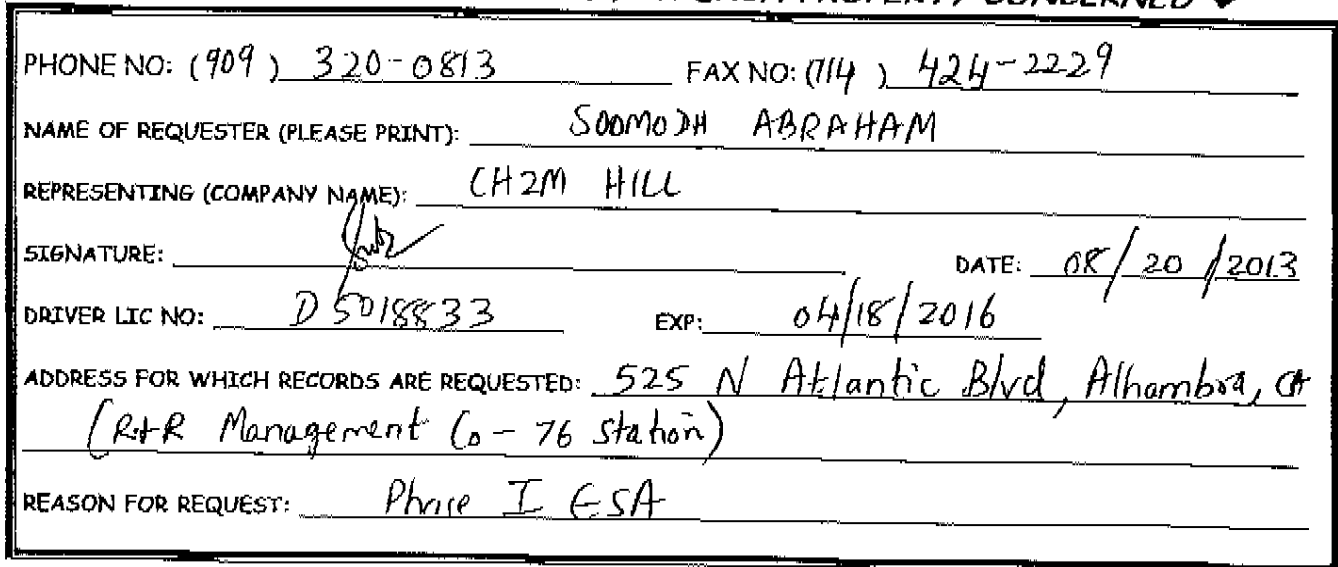 PROPERTY CONCERNED
PHONE NO: (909) 320-0813 FAX NO: (714) 424-2229
NAME OF REQUESTER (PLEASE PRINT): SOOMODH ABRAHAM
REPRESENTING (COMPANY NAME): CH2M HILL
SIGNATURE: DATE: 08/20/2013
DRIVER LIC NO: D5018833 EXP: 04/18/2016
ADDRESS FOR WHICH RECORDS ARE REQUESTED: 525 N Atlantic Blvd, Alhambra, CA
(R+R Management Co - 76 Station)
REASON FOR REQUEST: Phase I ESA